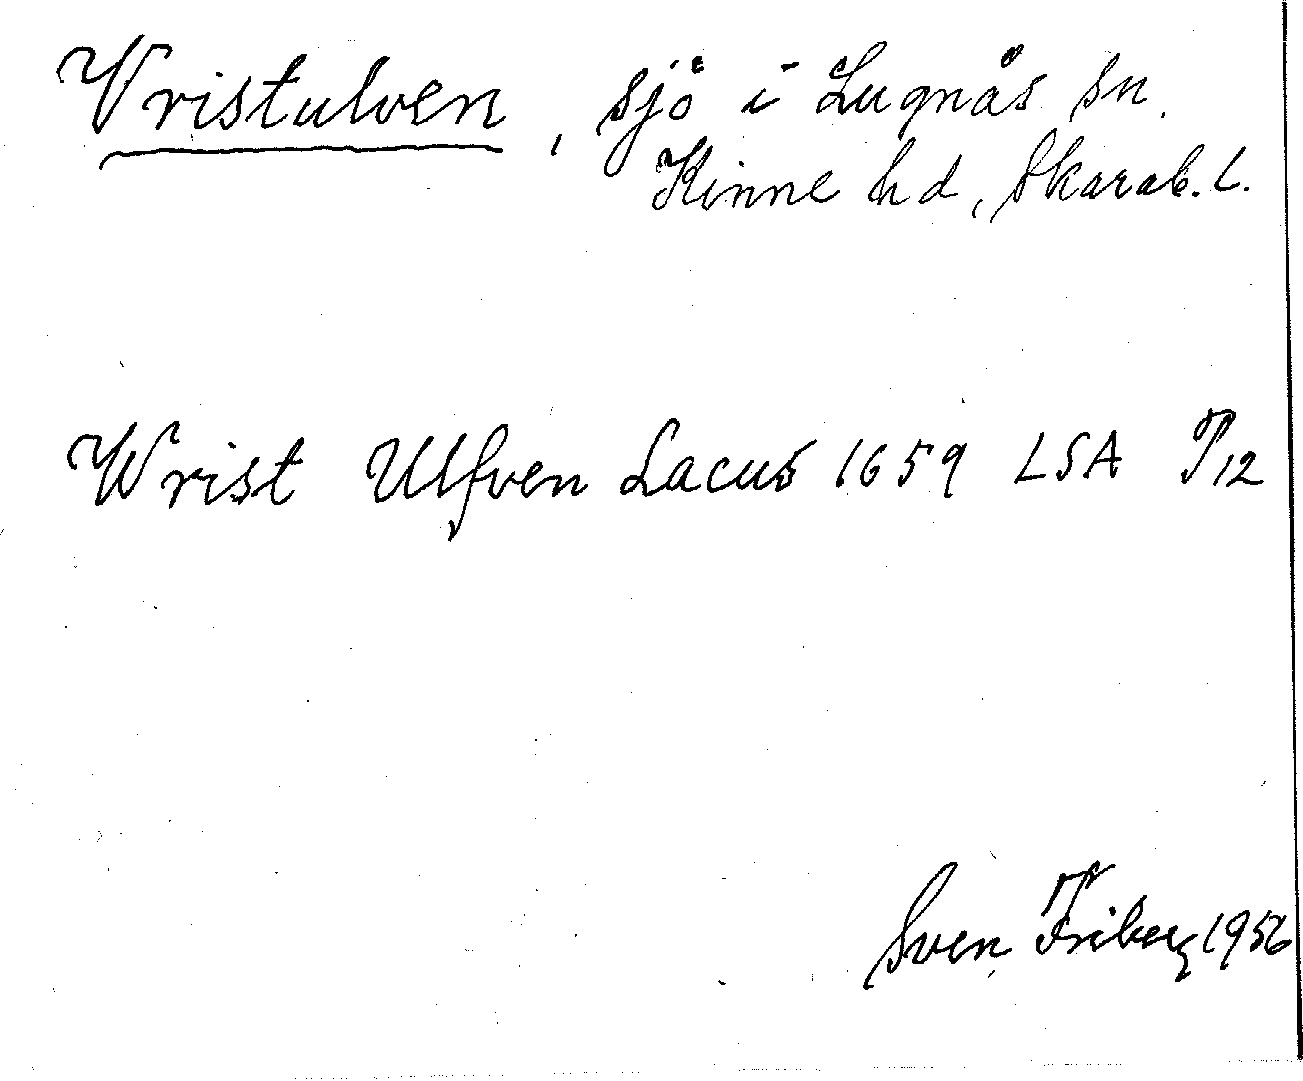 Vristulven, sjö i Lugnås sn.
Kinne hd, Skarab. l.
Wrist Ulfven Lacus 1659 LSA P12
Sven Friberg 1956